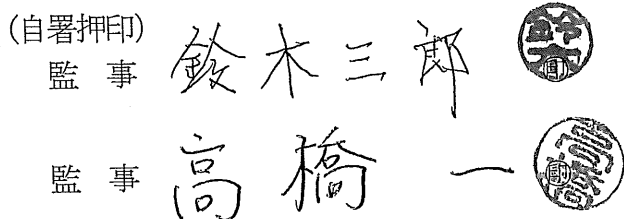 (自署押印)
監 事 鈴木三郎 鈴木
監 事 高橋一 高橋